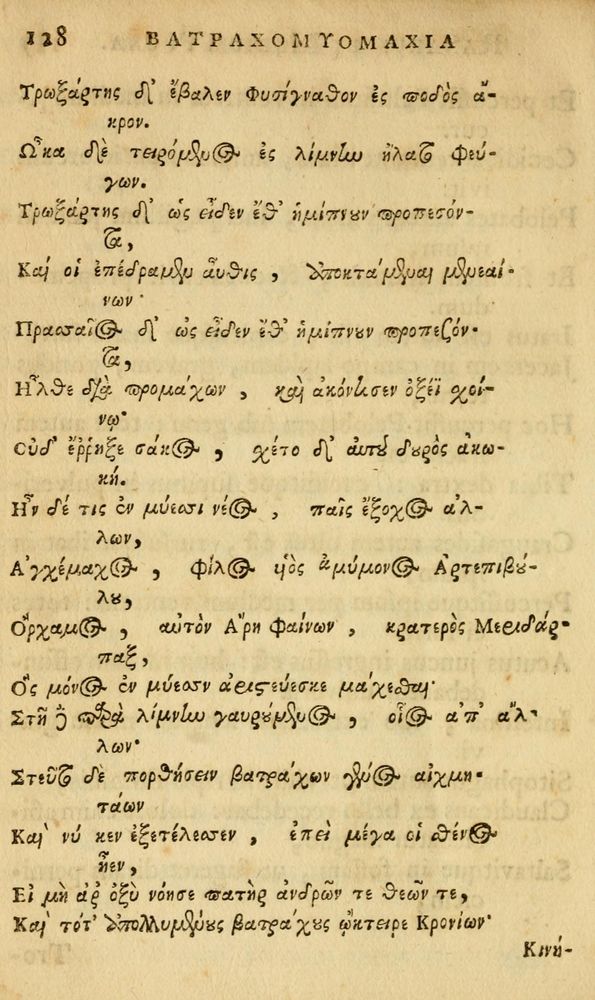 128 ΒΑΤΡΑΧΟΜΥΟΜΑΧΙΑ
Τρωξάρτης δ' ἔβαλεν Φυσίγναθον ἐς ποδὸς ἄ-
κρον.
Ω῏κα δὲ τειρόμενος ἐς λίμνην ἥλατο φεύ-
γων.
Τρωξάρτης δ' ὡς εἶδεν ἔθ' ἡμίπνουν προπεσόν-
τα,
Καί οἱ ἐπέδραμεν αὖθις, ἀποκτάμεναι μενεαί-
νων·
Πρασσαῖος δ' ὡς εἶδεν ἔθ' ἡμίπνουν προπεζόν-
τα,
Η῏λθε διὰ προμάχων, καὶ ἀκόντισεν ὀξέϊ χοί-
νῳ·
Οὐδ' ἔῤῥηξε σάκος, χέτο δ' αὐτοῦ δουρὸς ἀκω-
κή.
Η῏ν δέ τις ἐν μύεσσι νέος, παῖς ἔξοχος ἄλ-
λων,
Α᾿γχέμαχος, φίλος υἱὸς ἀμύμονος Ἀρτεπιβού-
λου,
Ο῎ρχαμος, αὐτὸν Ἄρη φαίνων, κρατερὸς Μεριδάρ-
παξ,
Ο῝ς μόνος ἐν μύεσσιν ἀριστεύεσκε μάχεσθαι·
Στῆ δὲ παρὰ λίμνην γαυρούμενος, οἶος ἀπ' ἄλ-
λων·
Στεῦτο δὲ πορθήσειν βατράχων γένος αἰχμη-
τάων
Καὶ νύ κεν ἐξετέλεσσεν, ἐπεὶ μέγα οἱ σθένος
ἦεν,
Εἰ μὴ ἄρ ὀξὺ νόησε πατὴρ ἀνδρῶν τε θεῶν τε,
Καὶ τότ' ἀπολλυμένους βατράχους ᾤκτειρε Κρονίων·
Κινή-